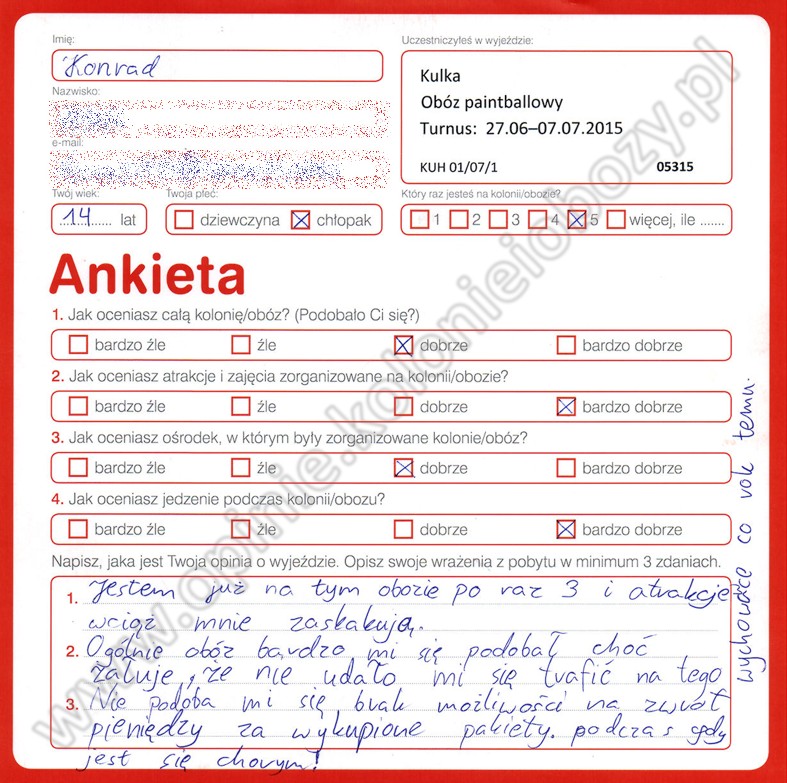 Imię:
Konrad
Nazwisko:
e-mail:
Twój wiek:
14 lat
Twoja płeć:
dziewczyna chłopak
Uczestniczyłeś w wyjeździe:
Kulka
Obóz paintballowy
Turnus: 27.06–07.07.2015
KUH 01/07/1 05315
Który raz jesteś na kolonii/obozie?
1 2 3 4 5 więcej, ile .......
Ankieta
1. Jak oceniasz całą kolonię/obóz? (Podobało Ci się?)
bardzo źle źle dobrze bardzo dobrze
2. Jak oceniasz atrakcje i zajęcia zorganizowane na kolonii/obozie?
bardzo źle źle dobrze bardzo dobrze
3. Jak oceniasz ośrodek, w którym były zorganizowane kolonie/obóz?
bardzo źle źle dobrze bardzo dobrze
4. Jak oceniasz jedzenie podczas kolonii/obozu?
bardzo źle źle dobrze bardzo dobrze
Napisz, jaka jest Twoja opinia o wyjeździe. Opisz swoje wrażenia z pobytu w minimum 3 zdaniach.
1. Jestem już na tym obozie po raz 3 i atrakcje
wciąż mnie zaskakują.
2. Ogólnie obóz bardzo mi się podobał choć
żałuje, że nie udało mi się trafić na tego
wychowdce co rok temu.
3. Nie podoba mi się brak możliwości na zwrot
pieniędzy za wykupione pakiety. podczas gdy
jest się chorym!
www.opinie.kolonieiobozy.pl